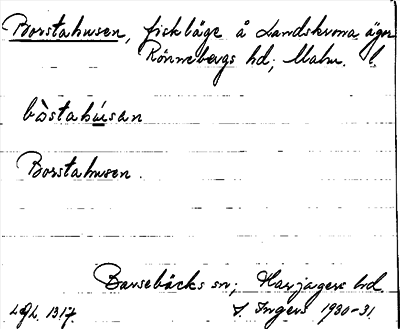 Borstahusen, fiskläge å Landskrona ägor
Rönnebergs hd; Malm. l.
bòstahúsan
Borstahusen.
Barsebäcks sn; Harjagers hd.
LGL. 1317. I. Ingers 1930-31